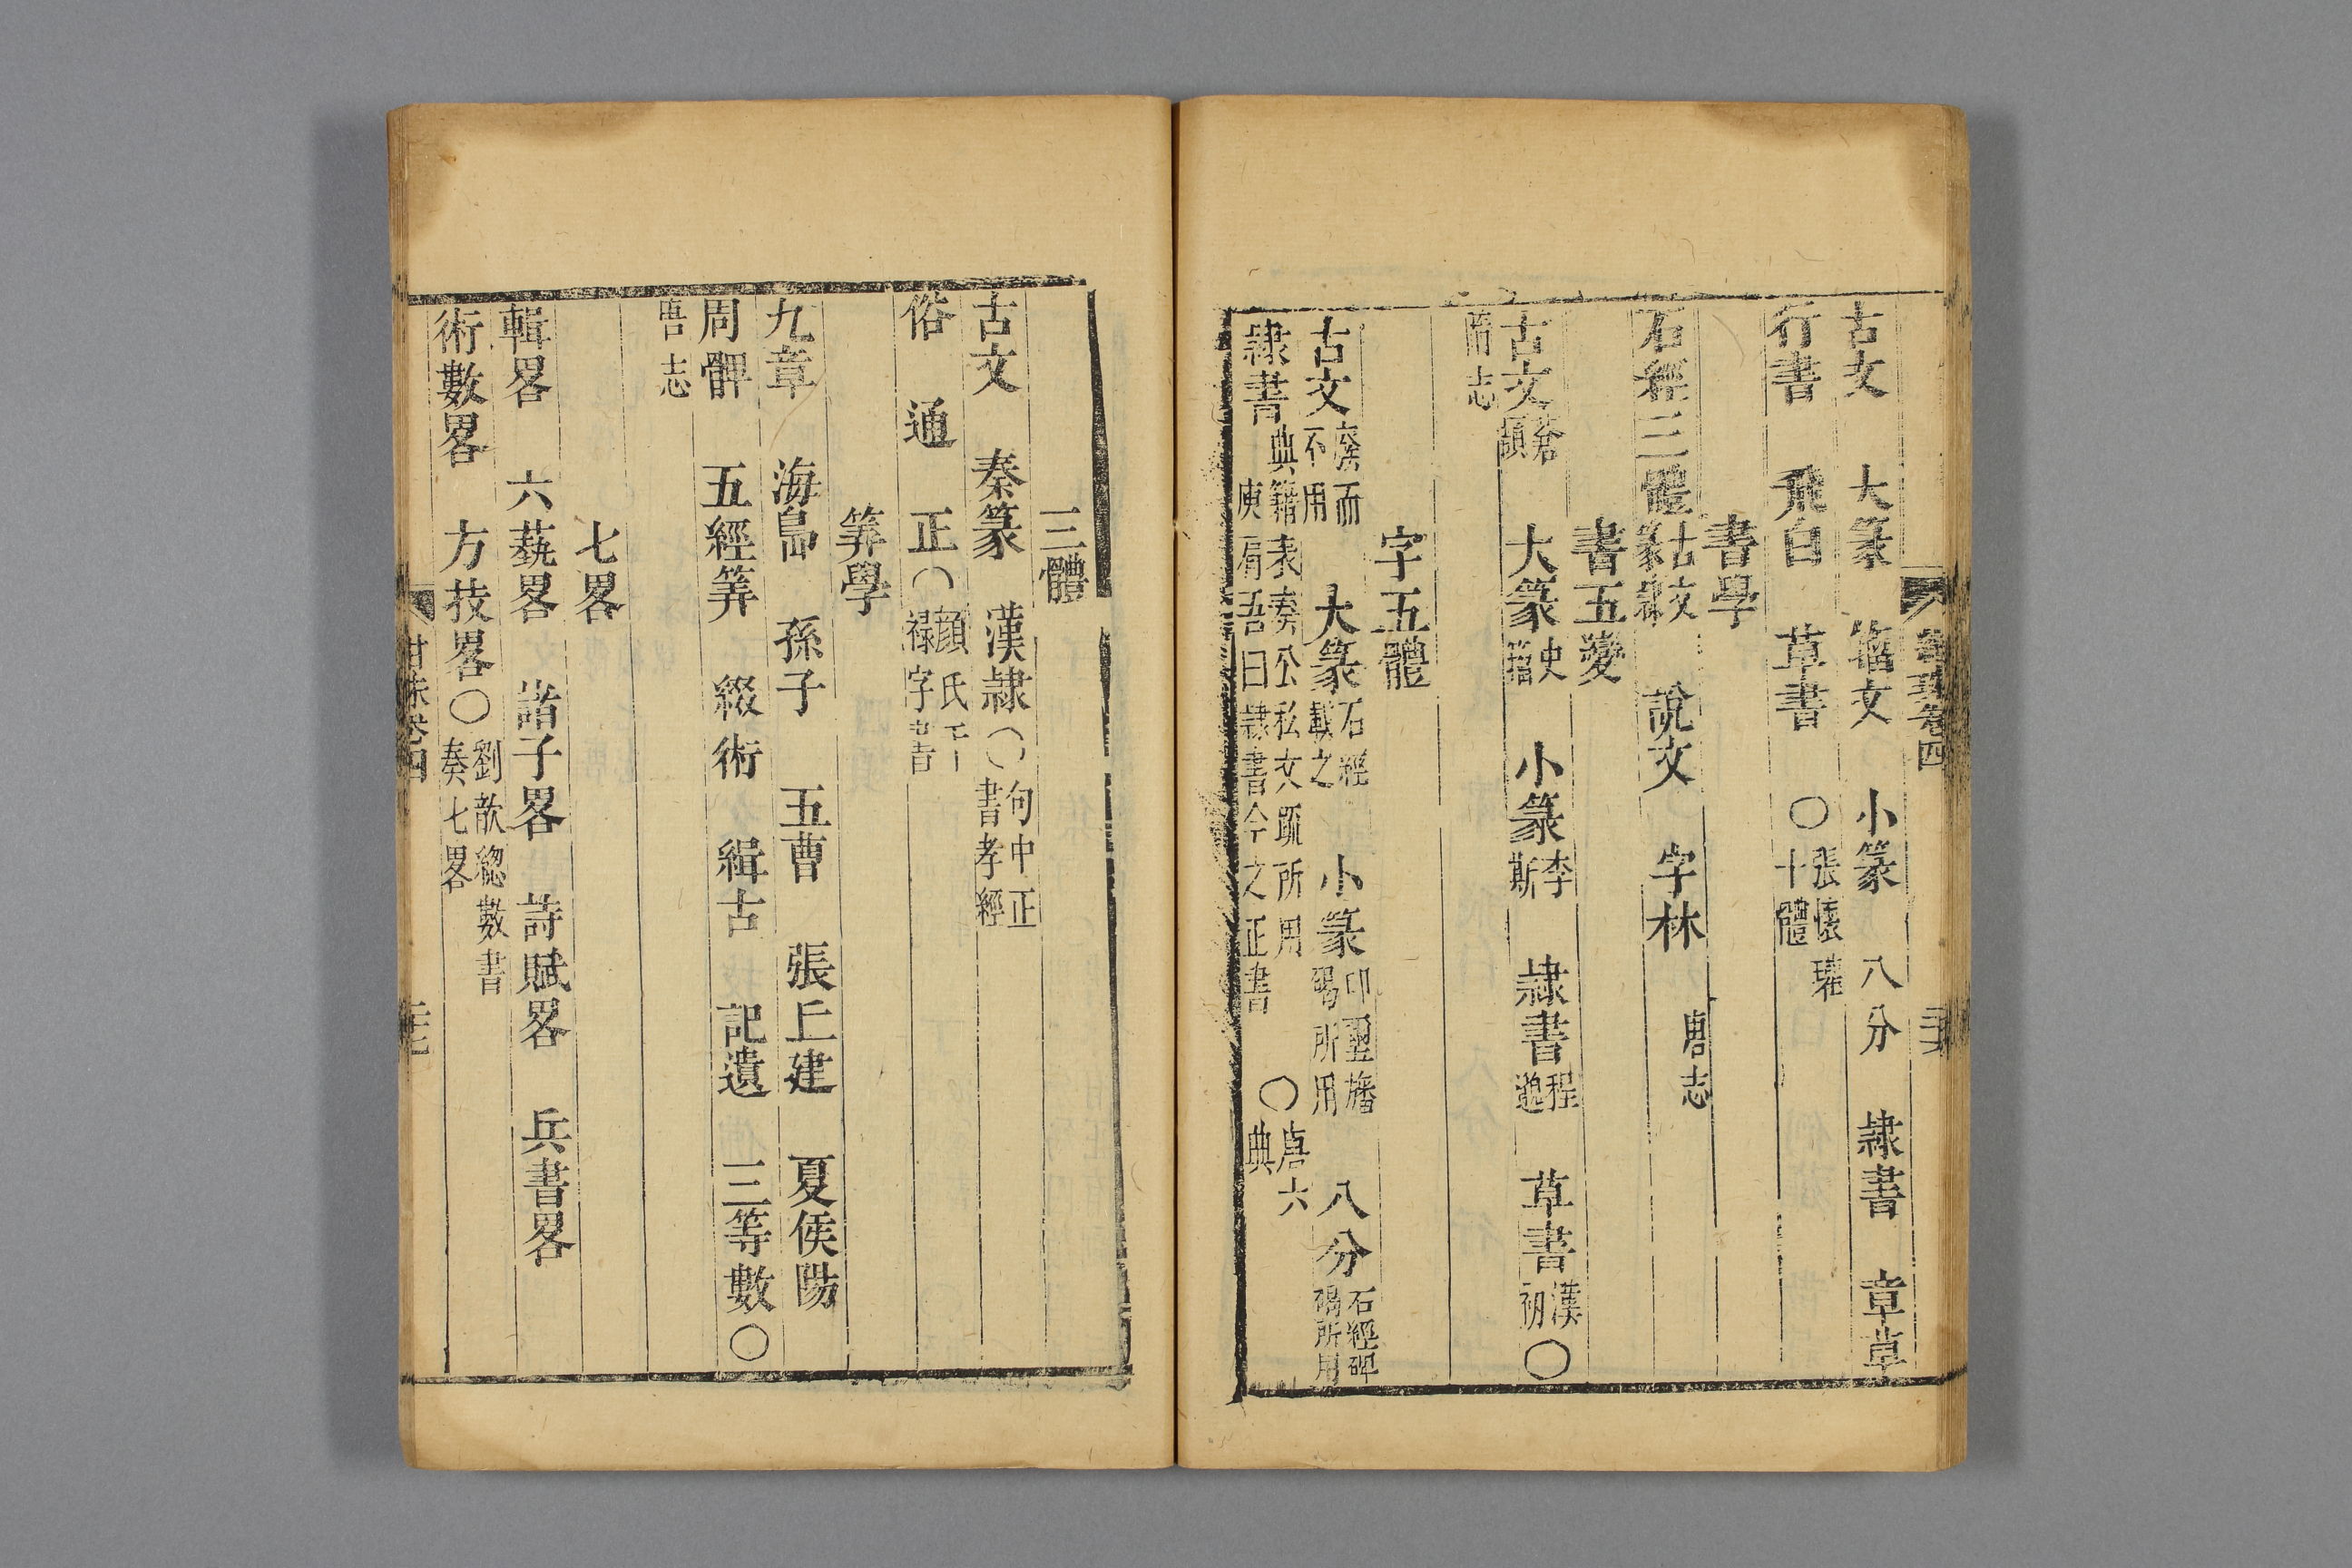 古文　大篆　籀文　小篆　八分　隷書　章草
行書　飛白　草書　○張懷瓘十體
書學
石經三體古文篆隷　說文　字林　唐志
書五變
古文蒼頡　大篆史籀　小篆李斯　隷書程邈　草書漢初○
隋志
字五體
古文廢而不用　大篆石經載之　小篆印璽旛碣所用　八分石經碑碣所用
隷書典籍表奏公私文疏所用庾肩吾曰隷書今之正書○唐六典
三體
古文　秦篆　漢隷○句中正書孝經
俗　通　正○顔氏干祿字書
筭學
九章　海島　孫子　五曹　張丘建　夏侯陽
周髀　五經筭　綴術　緝古　記遺　三等數○
唐志
七畧
輯畧　六蓺畧　諸子畧　詩賦畧　兵書畧
術數畧　方技畧○劉歆緫數書奏七畧
卷四